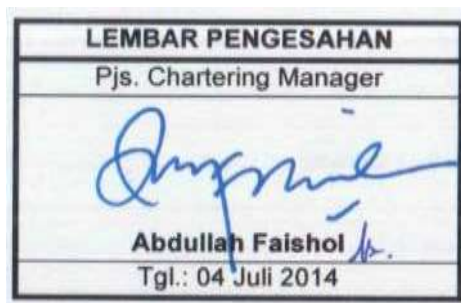 LEMBAR PENGESAHAN
Pjs. Chartering Manager
Abdullah Faishol
Tgl.: 04 Juli 2014